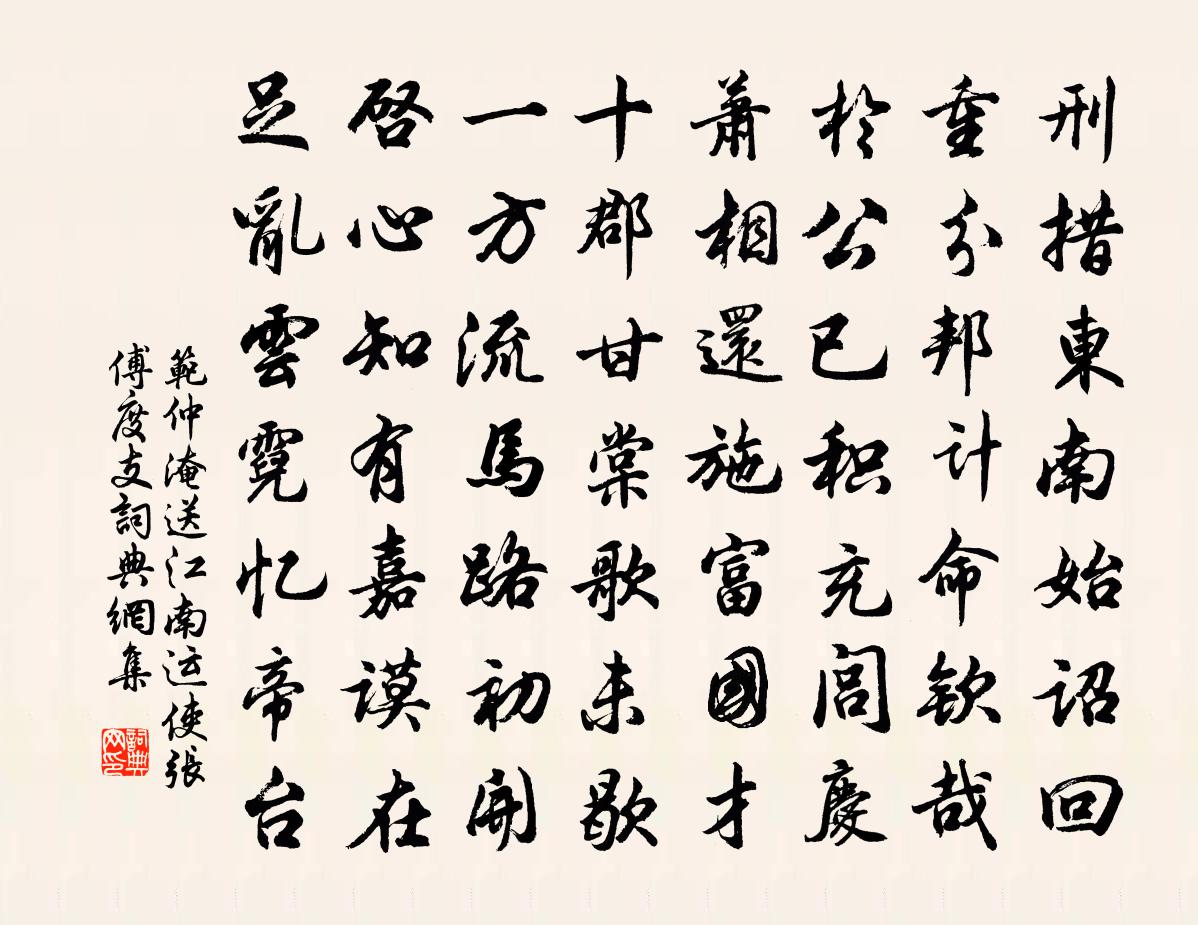 刑措東南始詔回
重分邦計命欽哉
於公已积充閭慶
蕭相還施富國才
十郡甘棠歌未歇
一方流馬路初開
啓心知有嘉謨在
足亂雲霓忆帝台
範仲淹送江南运使張
傅度支詞典網集
詞典
网印